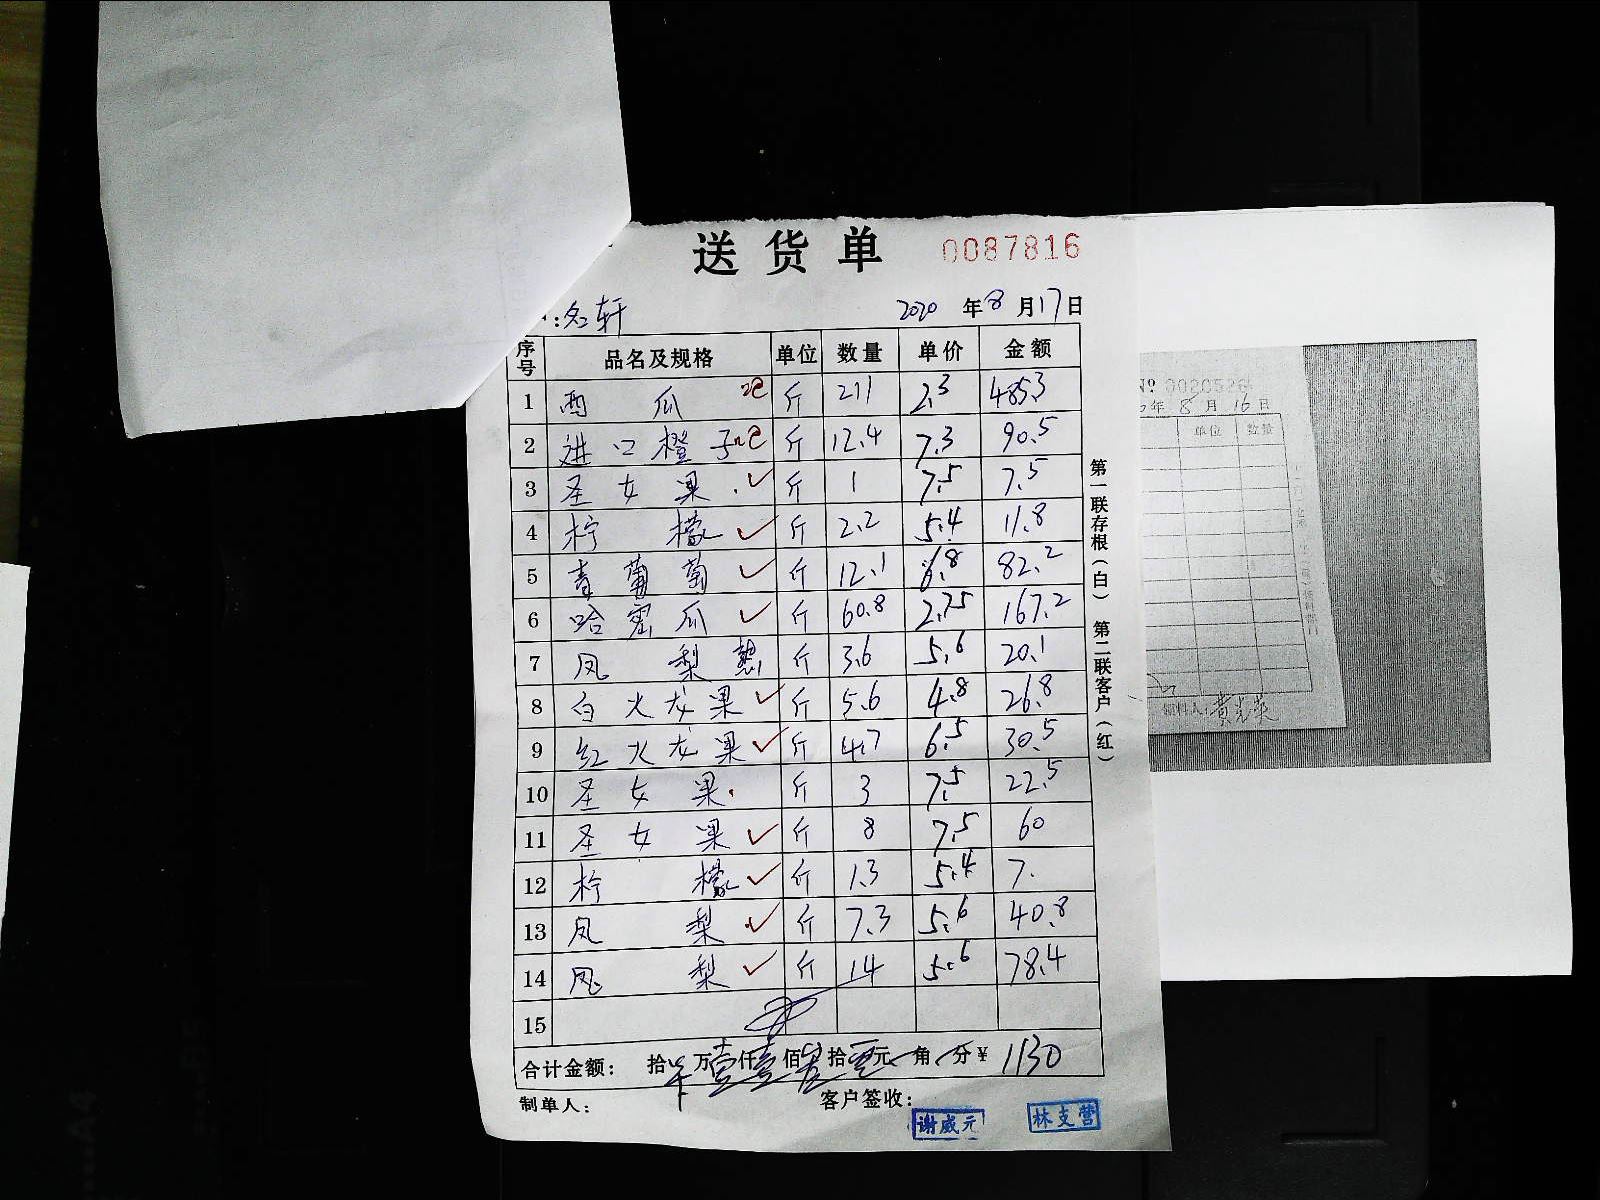 送货单 0087816
:名轩 2020 年 8 月 17 日
序号 品名及规格 单位 数量 单价 金额
1 西瓜 斤 211 2.3 485.3
2 进口橙子 斤 12.4 7.3 90.5
3 圣女果 斤 1 7.5 7.5
4 柠檬 斤 2.2 5.4 11.8
5 青葡萄 斤 12.1 6.8 82.2
6 哈密瓜 斤 60.8 2.75 167.2
7 凤梨 斤 3.6 5.6 20.1
8 白火龙果 斤 5.6 4.8 26.8
9 红火龙果 斤 4.7 6.5 30.5
10 圣女果 斤 3 7.5 22.5
11 圣女果 斤 8 7.5 60
12 柠檬 斤 1.3 5.4 7.
13 凤梨 斤 7.3 5.6 40.8
14 凤梨 斤 14 5.6 78.4
15
合计金额: 拾 万壹仟壹佰 拾 元 角 分 ¥ 1130
制单人: 客户签收:
谢威元 林支营
第一联存根(白) 第二联客户(红)
№ 0020526
年 8 月 16 日
单位 数量
领料人:黄光英
A4
B5